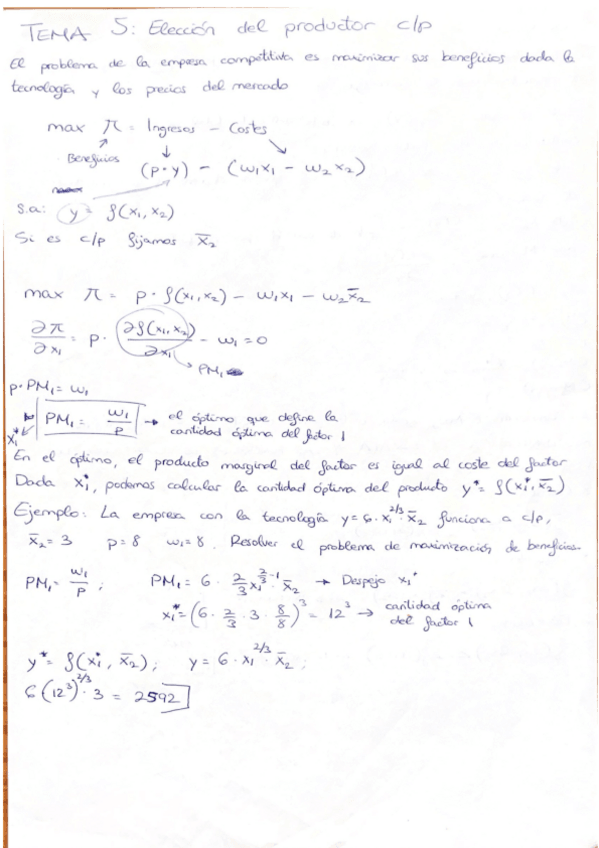 TEMA 5: Elección del productor c/p
El problema de la empresa competitiva es maximizar sus beneficios dada la
tecnología y los precios del mercado
max π = Ingresos - Costes
Beneficios
(p·y) - (w₁x₁ - w₂x₂)
s.a: y = f(x₁, x₂)
Si es c/p fijamos x̄₂
max π = p · f(x₁, x₂) - w₁x₁ - w₂x̄₂
∂π/∂x₁ = p · ∂f(x₁, x₂)/∂x₁ - w₁ = 0
PM₁
p·PM₁ = w₁
PM₁ = w₁/p → el óptimo que define la
x₁* cantidad óptima del factor 1
En el óptimo, el producto marginal del factor es igual al coste del factor
Dada x₁*, podemos calcular la cantidad óptima del producto y* = f(x₁*, x̄₂)
Ejemplo: La empresa con la tecnología y = 6·x₁^2/3·x̄₂ funciona a c/p,
x̄₂ = 3 p = 8 w₁ = 8. Resolver el problema de maximización de beneficios.
PM₁ = w₁/p ; PM₁ = 6 · 2/3 x₁^(2/3 -1) · x̄₂ → Despejo x₁*
x₁* = (6 · 2/3 · 3 · 8/8)³ = 12³ → cantidad óptima
del factor 1
y* = f(x₁*, x̄₂) ; y = 6 · x₁^2/3 · x̄₂ ;
6(12³)^2/3 · 3 = 2592